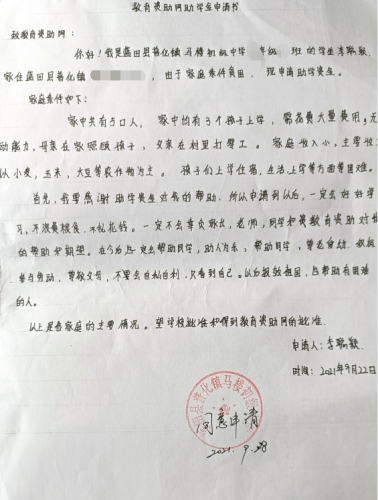 教育资助网助学生申请书
致教育资助网：
你好！我是蓝田县普化镇马楼初级中学 年级 班的学生李
家住蓝田县普化镇 ，由于家庭条件贫困，现申请助学资生。
家庭条件如下：
家中共有5口人，家中均有3个孩子上学，需花费大量费用。无
动能力，母亲在家照顾孩子，父亲在村里打零工。家庭收入小，主要收
以小麦，玉米，大豆等农作物为主。孩子们上学住宿，生活上学等方面等困难。
首先，我要感谢助学资生对我的帮助。所以申请到以后，一定会好好学
习，不浪费粮食，不乱花钱。一定不会辜负家长，老师，同学和教育资助对我
的帮助和期望。在今后一定去帮助同学，助人为乐，帮助同学，尊老爱幼，积极
参与劳动，尊敬父母，不要去自私自利，只看到自己。以后报效祖国，去帮助有困难
的人。
以上是我家庭的主要情况。望学校批准和得到教育资助网的批准。
申请人：李
时间：2021年9月22日
蓝田县普化镇马楼初级
同意申请
2021. 9. 28